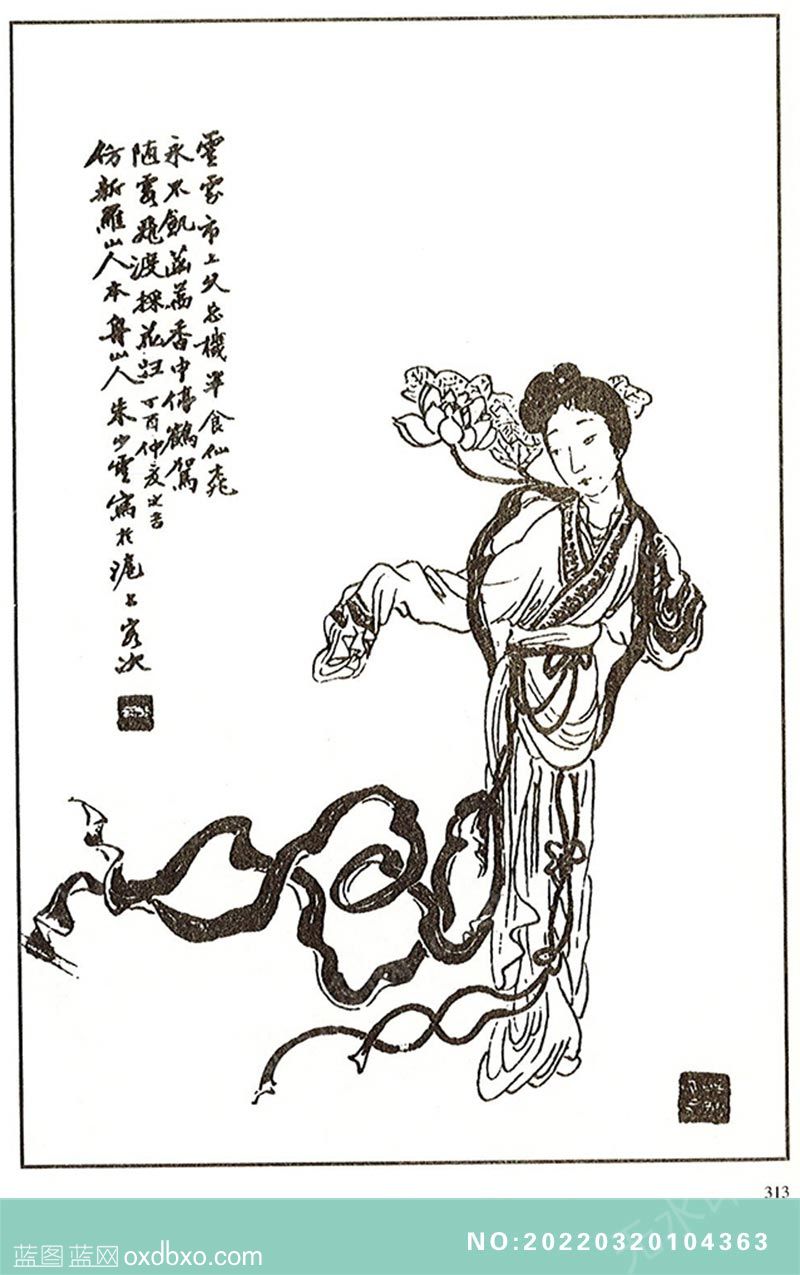 雲霧市上久忘機單食仙桃
永不飢菡萏香中停鶴駕
随雲飛渡採花归丁酉仲夏之吉
仿新羅山人本舟山人朱少雲寫於滬上客次
313
蓝图蓝网oxdbxo.com
NO:20220320104363